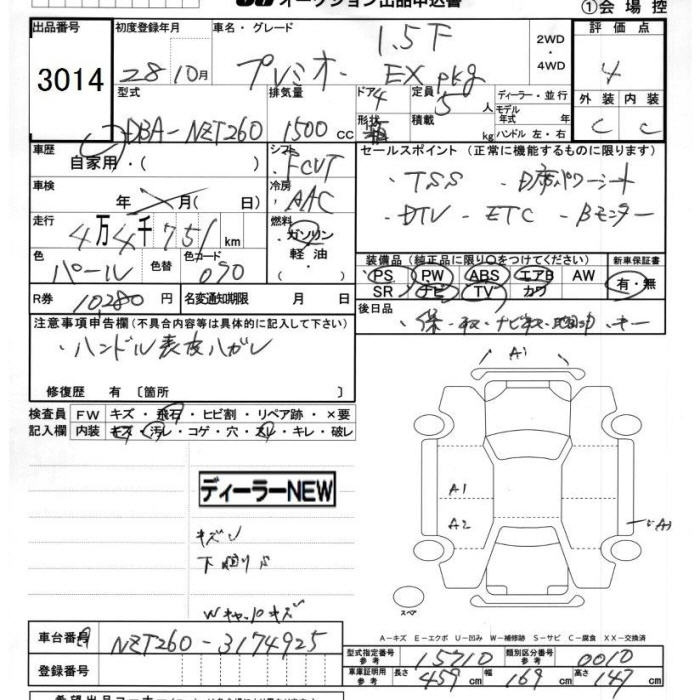 オークション出品申込書
①会場控
出品番号
3014
初度登録年月
28年10月
車名・グレード
プレミオ
1.5F
EX pkg
2WD
・
4WD
評価点
4
外装 内装
C C
型式
DBA-NZT260
排気量
1500cc
ドア
4
形状
定員
5人
積載
kg
ディーラー・並行
モデル
年式 年
ハンドル 左・右
車歴
自家用・( )
シフト
FCVT
セールスポイント (正常に機能するものに限ります)
・TSS
・DTV ・ETC ・Bモニター
車検
年 月( 日)
冷房
AAC
走行
4万4千751km
燃料
ガソリン
軽油
・( )
色
パール
色替
色コード
070
装備品(純正品に限り○をつけてください)
PS PW ABS エアB AW
SR ナビ TV カワ
新車保証書
有・無
R券
10,280円
名変通知期限 月 日
後日品
注意事項申告欄(不具合内容等は具体的に記入して下さい)
・ハンドル表皮ハガレ
修復歴 有 〔箇所 〕
検査員
記入欄
FW キズ・飛石・ヒビ割・リペア跡・×要
内装 キズ・汚レ・コゲ・穴・スレ・キレ・破レ
ディーラーNEW
キズ
下回り
Wキャップキズ
A1
A1
A2
A1
スペア
A-キズ E-エクボ U-凹み W-補修跡 S-サビ C-腐食 XX-交換済
車台番号
NZT260-3174925
登録番号
型式指定番号
参考
15710
類別区分番号
参考
0010
車庫証明用
参考
長さ 459cm 幅 169cm 高さ 147cm